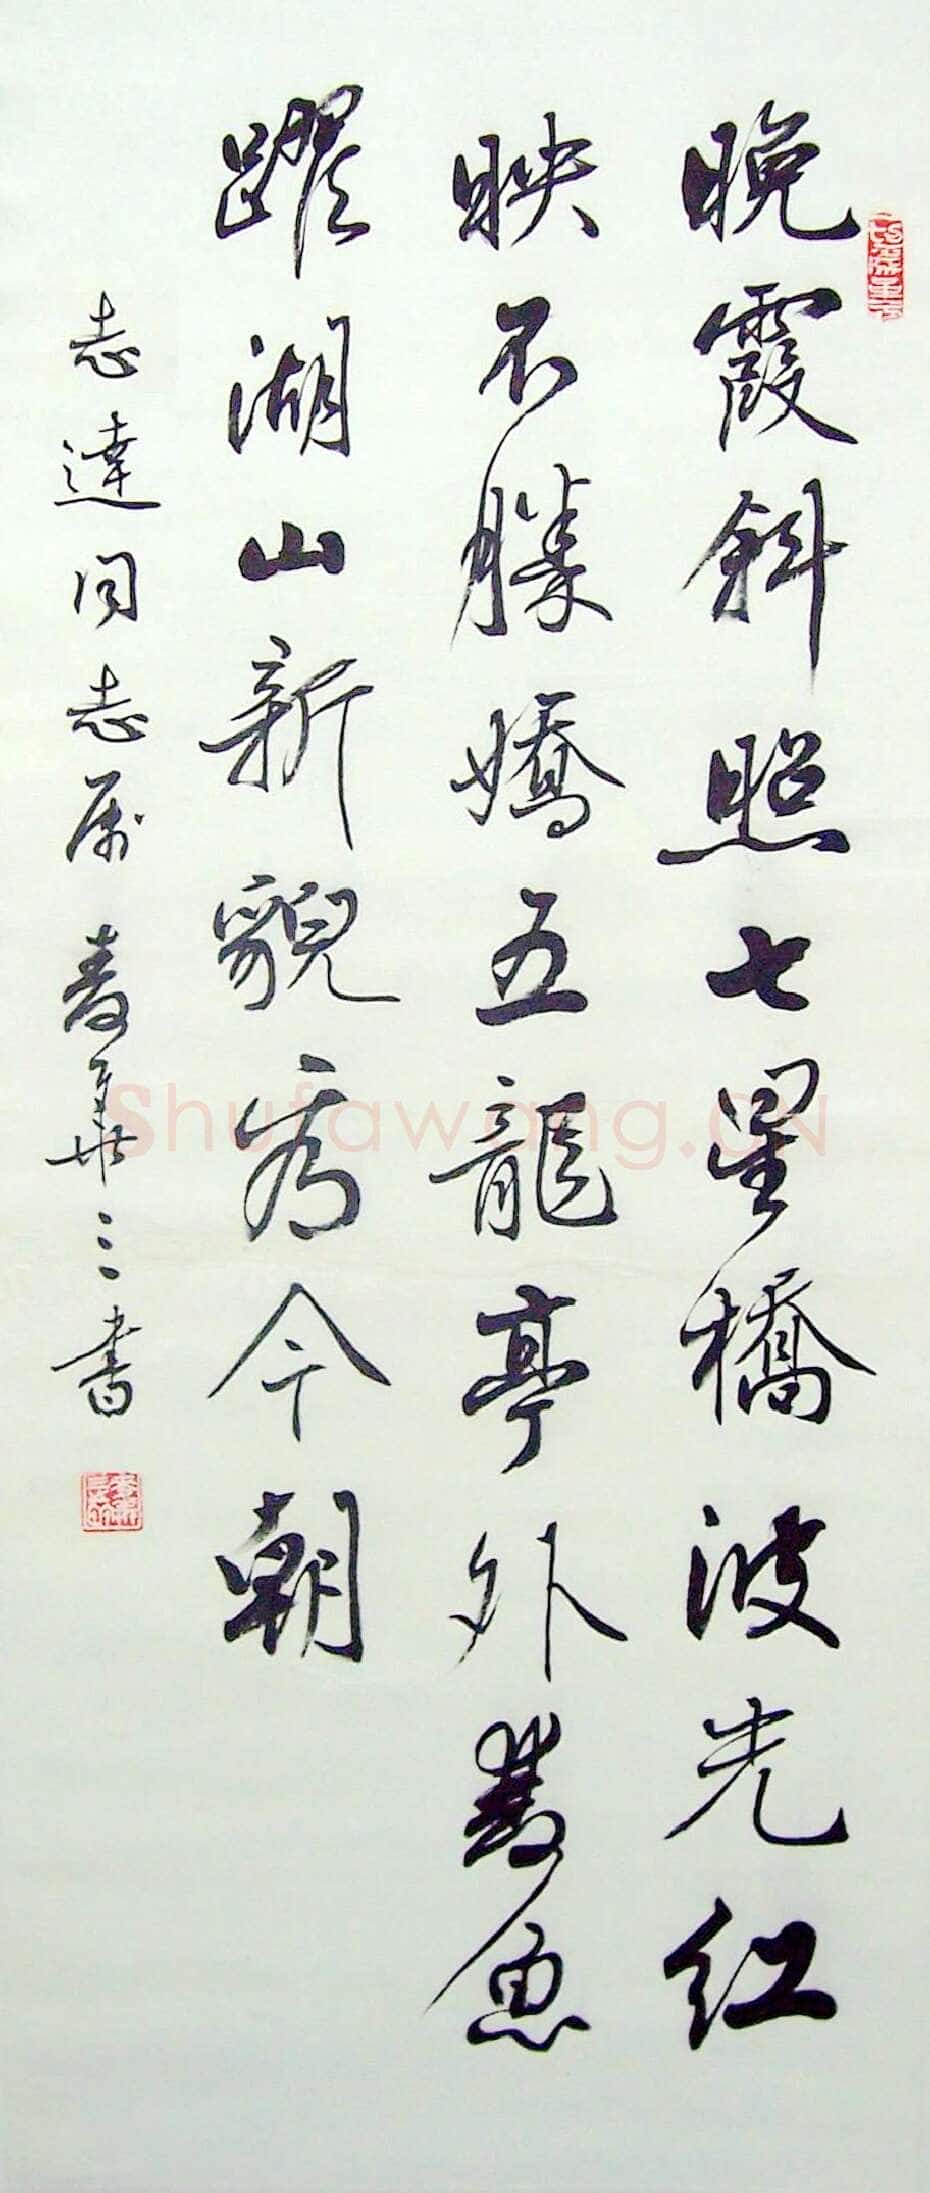 晚霞斜照七星橋波光紅
映不勝嬌五龍亭外雙魚
躍湖山新貌秀今朝
志達同志属 婁華三書
Shufawang.CN